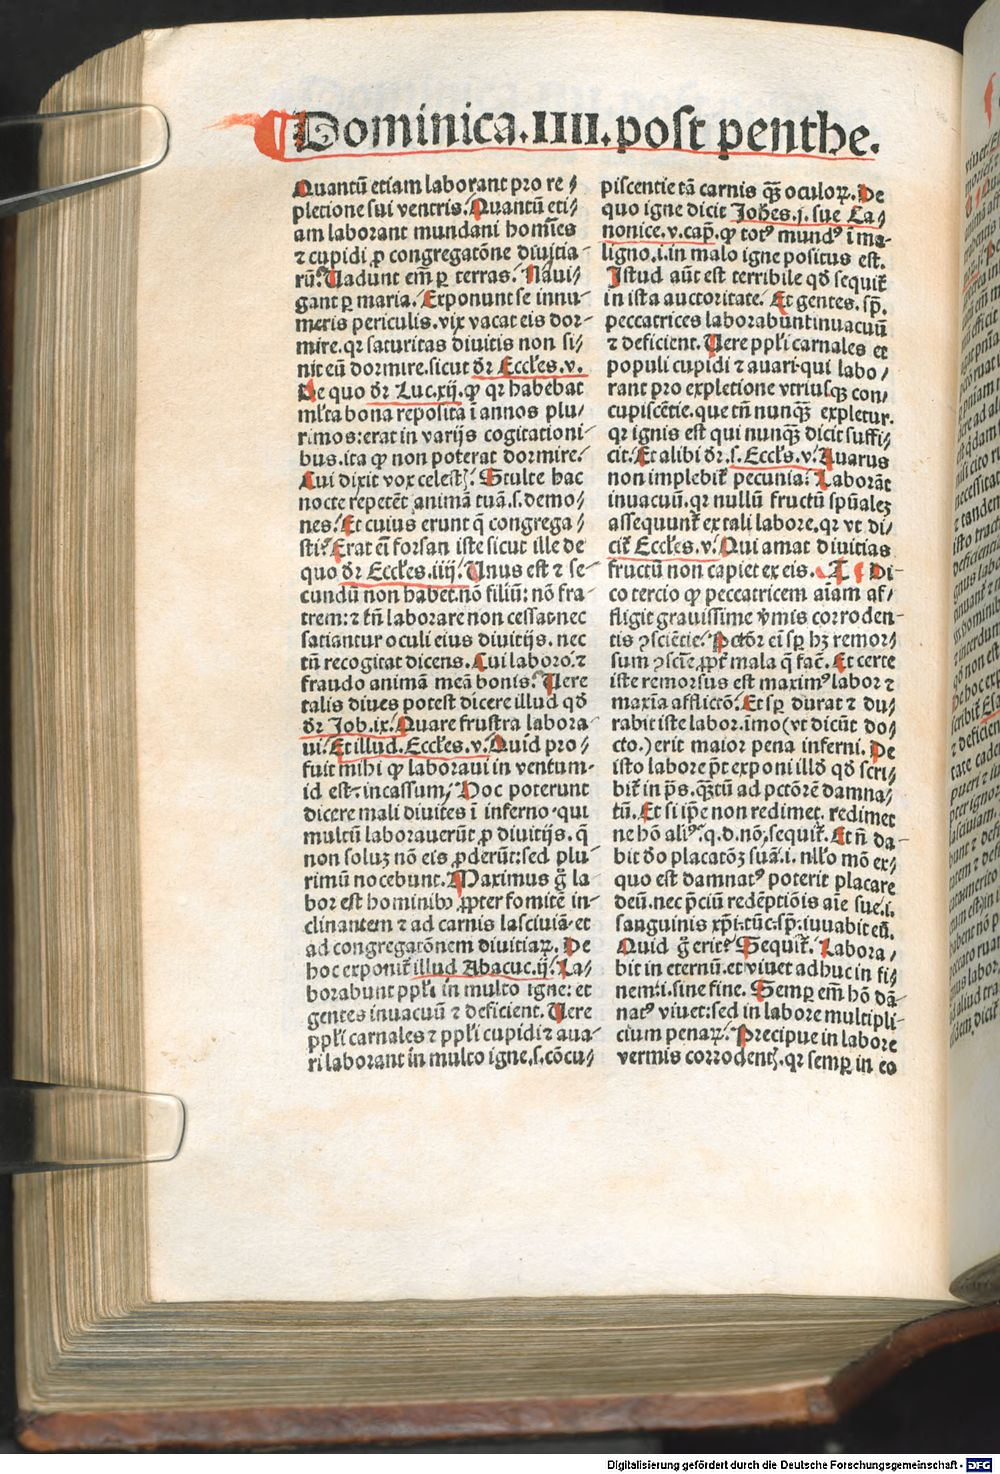 Dominica.IIII.post penthe.
Quantū etiam laborant pro re⸗
pletione sui ventris. Quantū eti⸗
am laborant mundani homīes
⁊ cupidi ꝓ congregatōne diuitia
rū. Uadunt em̄ ꝑ terras. Naui⸗
gant ꝑ maria. Exponunt se innu⸗
meris periculis. vix vacat eis dor⸗
mire. qꝛ saturitas diuitis non si⸗
nit eū dormire. sicut dr̄ Eccl̄es. v.
De quo dr̄ Luc. xij. ꝙ qꝛ habebat
ml̄ta bona reposita ī annos plu⸗
rimos: erat in varijs cogitationi⸗
bus. ita ꝙ non poterat dormire.
Cui dixit vox celestꝭ. Stulte hac
nocte repetēt animā tuā. s. demo⸗
nes. Et cuius erunt q̄ congrega⸗
sti? Erat em̄ forsan iste sicut ille de
quo dr̄ Eccl̄es. iiij. Unus est ⁊ se⸗
cundū non habet. nō filiū: nō fra⸗
trem: ⁊ tn̄ laborare non cessat. nec
satiantur oculi eius diuitijs. nec
tn̄ recogitat dicens. Cui laboro. ⁊
fraudo animā meā bonis? Uere
talis diues potest dicere illud qd̄
dr̄ Job. ix. Quare frustra labora⸗
ui. Et illud. Eccl̄es. v. Quid pro⸗
fuit mihi ꝙ laboraui in ventum⸗
id est. incassum? Hoc poterunt
dicere mali diuites ī inferno. qui
multū laborauerūt ꝓ diuitijs. q̄
non soluꝫ nō eis ꝓderūt: sed plu⸗
rimū nocebunt. Maximus g̃ la
bor est hominibꝰ ꝓpter fomitē in⸗
clinantem ⁊ ad carnis lasciuiā. et
ad congregatōnem diuitiaꝝ. De
hoc exponit̄ illud Abacuc. ij. La⸗
borabunt ppl̄i in multo igne: et
gentes inuacuū ⁊ deficient. Uere
ppl̄i carnales ⁊ ppl̄i cupidi ⁊ aua⸗
ri laborant in multo igne. s. cōcu⸗
piscentie tā carnis qꝫ̄ oculoꝝ. De
quo igne dicit Joh̄es. j. sue Ca⸗
nonice. v. cap̄. ꝙ totꝰ mundꝰ ī ma⸗
ligno. i. in malo igne positus est.
Istud aūt est terribile qd̄ sequit̄
in ista auctoritate. Et gentes. sp̄.
peccatrices laborabunt inuacuū
⁊ deficient. Uere ppl̄i carnales et
populi cupidi ⁊ auari. qui labo⸗
rant pro expletione vtriusqꝫ con⸗
cupiscētie. que tn̄ nunqꝫ̄ expletur.
qꝛ ignis est qui nunqꝫ̄ dicit suffi⸗
cit. Et alibi dr̄. s. Eccl̄s. v. Auarus
non implebit̄ pecunia: Laborāt
inuacuū. qꝛ nullū fructū spūalez
assequunt̄ ex tali labore. qꝛ vt di⸗
cit̄ Eccl̄es. v. Qui amat diuitias
fructū non capiet ex eis. T Di⸗
co tercio ꝙ peccatricem aīam af⸗
fligit grauissime v̄mis corroden⸗
tis ꝯsciētie. Pctōr em̄ sp̄ hꝫ remor⸗
sum ꝯscīe ꝓpt̄ mala q̄ fac̄. Et certe
iste remorsus est maximꝰ labor ⁊
maxīa afflictō. Et sp̄ durat ⁊ du⸗
rabit iste labor. īmo (vt dicūt do⸗
cto.) erit maior pena inferni. De
isto labore pt̄ exponi illd̄ qd̄ scri⸗
bit̄ in ps̄. qꝫ̄tū ad pctōrē damna⸗
tū. Et si ip̄e non redimet. redimet
ne hō aliꝰ. q. d. nō, sequit̄. Et n̄ da⸗
bit deo placatōꝫ suā. i. nll̄o mō ex⸗
quo est damnatꝰ poterit placare
deū. nec p̄ciū redēptiōis aīe sue. i.
sanguinis xp̄i. tūc. sp̄. iuuabit eū.
Quid g̃ erit? Sequit̄. Labora⸗
bit in eternū. et viuet adhuc in fi⸗
nem: i. sine fine. Semꝑ em̄ hō dā⸗
natꝰ viuet: sed in labore multipli⸗
cium penaꝝ. Precipue in labore
vermis corrodentꝭ. qꝛ semꝑ in eo
Digitalisierung gefördert durch die Deutsche Forschungsgemeinschaft - DFG